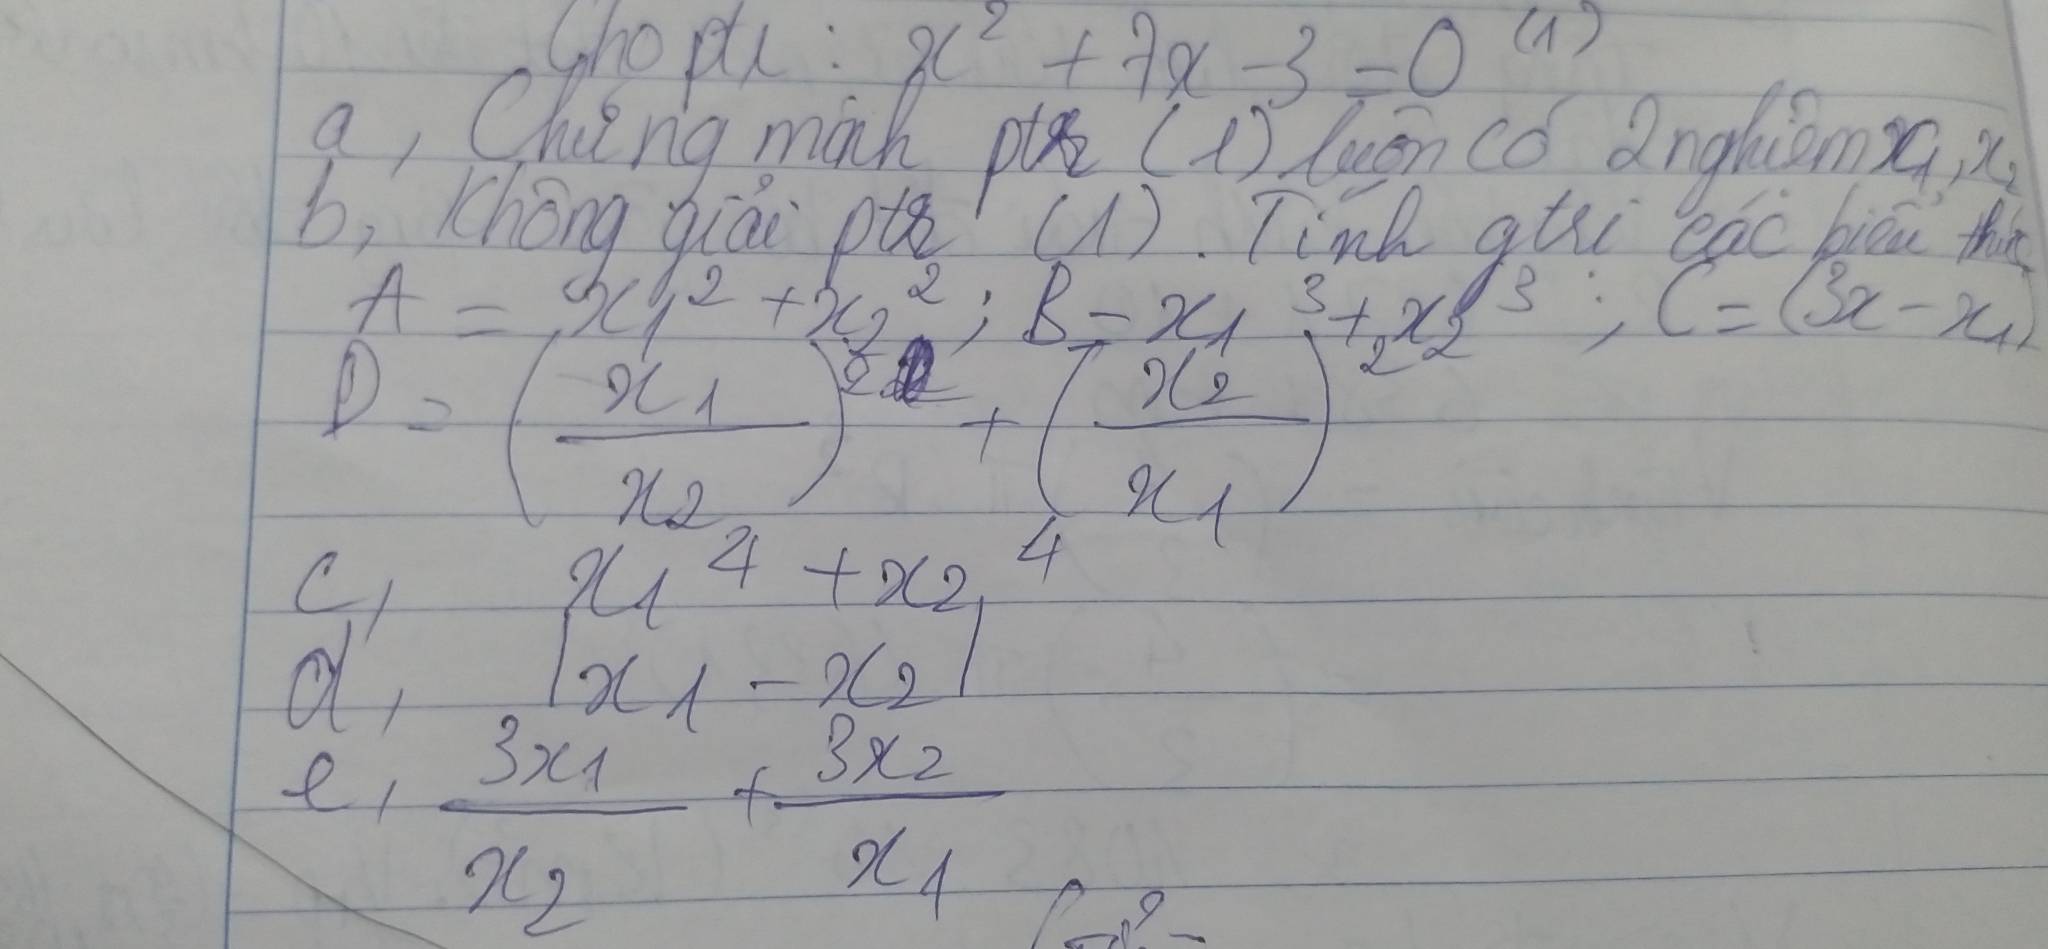 Cho ptr: x² + 7x - 3 = 0 (1)
a, Chứng minh ptr (1) luôn có 2 nghiệm x₁, x₂
b, Không giải ptr (1). Tính gtri các biểu thức
A = x₁² + x₂² ; B = x₁³ + x₂³ ; C = (3x - x₁)
D = (x₁/x₂)² + (x₂/x₁)²
c, x₁⁴ + x₂⁴
d, |x₁ - x₂|
e, 3x₁/x₂ + 3x₂/x₁